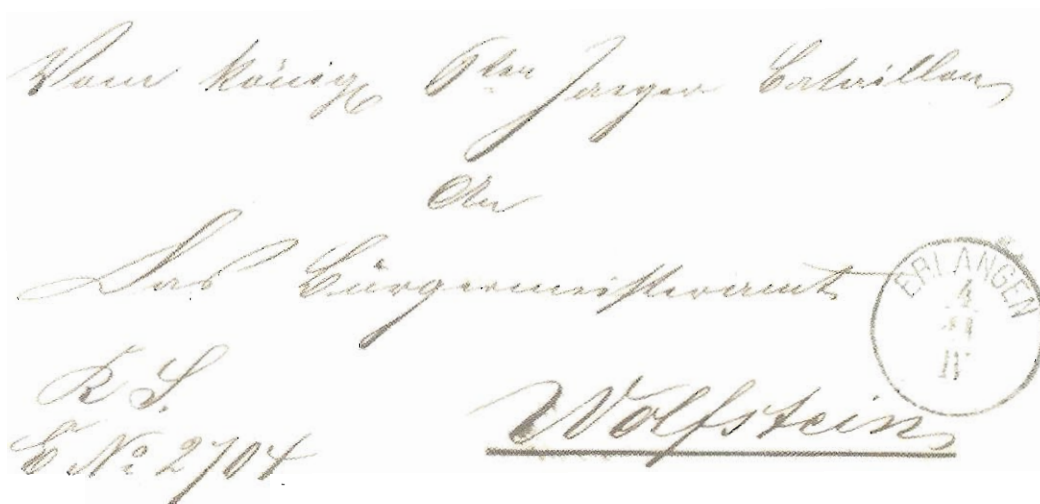 Vom königl. 6ten Jaeger Bataillon
An
Das Bürgermeisteramt
ERLANGEN
4
R. S.
E. No 2704
Wolfstein